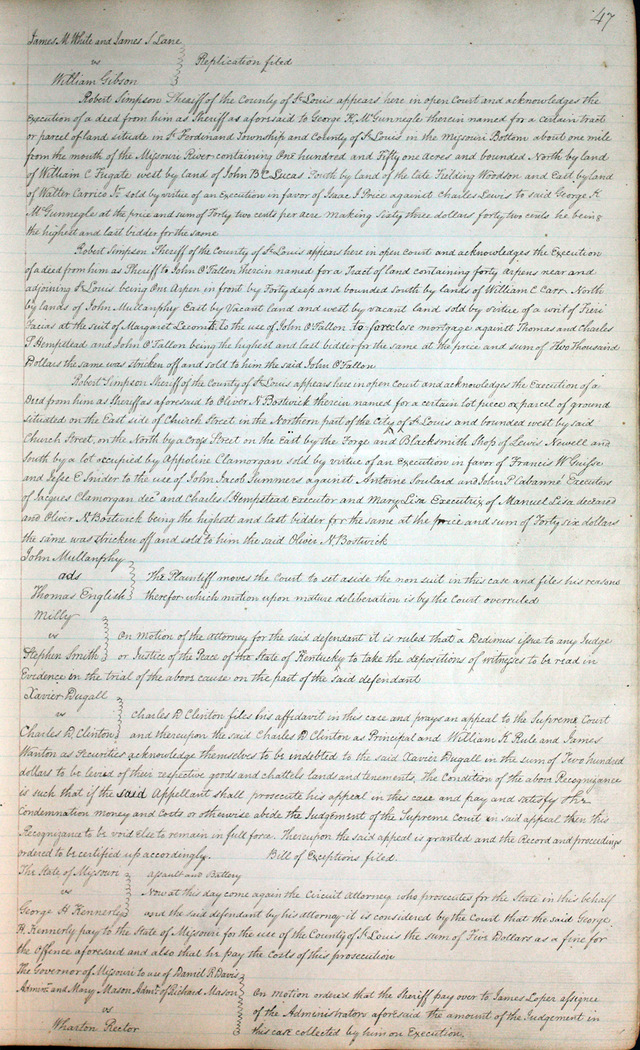 47
James M White and James S Lane
vs
William Gibson
Replication filed
Robert Simpson Sheriff of the County of St Louis appears here in open Court and acknowledges the
execution of a deed from him as Sheriff as aforesaid to George K. McGunnegle therein named for a certain tract
or parcel of land situate in St Ferdinand Township and County of St Louis in the Missouri Bottom about one mile
from the mouth of the Missouri River containing One hundred and Fifty one Acres and bounded North by land
of William C Fugate west by land of John B C Lucas South by land of the late Fielding Woodson and East by land
of Walter Carrico Jr sold by virtue of an Execution in favor of Isaac J Price against Charles Lewis to said George K
McGunnegle at the price and sum of Forty two cents per acre making Sixty three dollars forty two cents he being
the highest and last bidder for the same
Robert Simpson Sheriff of the County of St Louis appears here in open court and acknowledges the Execution
of a deed from him as Sheriff to John O'Fallon therein named for a Tract of land containing forty arpens near and
adjoining St Louis being One Arpen in front by Forty deep and bounded South by lands of William C Carr North
by lands of John Mullanphy East by Vacant Land and west by vacant land sold by virtue of a writ of Fieri
Facias at the suit of Margaret Lecomte to the use of John O'Fallon to foreclose mortgage against Thomas and Charles
S Hempstead and John O'Fallon being the highest and last bidder for the same at the price and sum of Two Thousand
Dollars the same was stricken off and sold to him the said John O'Fallon
Robert Simpson Sheriff of the County of St Louis appears here in open court and acknowledges the Execution of a
Deed from him as Sheriff as aforesaid to Oliver N Bostwick therein named for a certain lot piece or parcel of ground
situated on the East side of Church Street in the Northern part of the City of St Louis and bounded west by said
Church Street, on the North by a Cross Street on the East by the Forge and Blacksmith Shop of Lewis Newell and
South by a lot occupied by Appoline Clamorgan sold by virtue of an execution in favor of Francis W Guisse
and Jesse E Snider to the use of John Jacob Summers against Antoine Soulard and John P Cabanné Executors
of Jacques Clamorgan decd and Charles S Hempstead Executor and Mary Lisa Executrix of Manuel Lisa deceased
and Oliver N. Bostwick being the highest and last bidder for the same at the price and sum of Forty six dollars
the same was stricken off and sold to him the said Oliver N Bostwick
John Mullanphy
ads
Thomas English
The Plaintiff moves the Court to set aside the non suit in this case and files his reasons
therefor which motion upon mature deliberation is by the Court overruled
Milly
vs
Stephen Smith
On motion of the attorney for the said defendant it is ruled that a Dedimus issue to any Judge
or Justice of the Peace of the State of Kentucky to take the depositions of witnesses to be read in
Evidence on the trial of the above cause on the part of the said defendant
Xavier Dugall
vs
Charles D. Clinton
Charles D. Clinton files his affidavit in this case and prays an appeal to the Supreme Court
and thereupon the said Charles D Clinton as Principal and William K Rule and James
Wanton as Securities acknowledge themselves to be indebted to the said Xavier Dugall in the sum of Two hundred
dollars to be levied of their respective goods and chattels lands and tenements, The Condition of the above Recognizance
is such that if the said Appellant shall prosecute his appeal in this case and pay and satisfy the
Condemnation money and costs or otherwise abide the Judgement of the Supreme Court in said appeal then this
Recognizance to be void else to remain in full force. Thereupon the said appeal is granted and the Record and proceedings
ordered to be certified up accordingly. Bill of Exceptions filed.
The State of Missouri
vs
George H Kennerly
Assault and Battery
Now at this day come again the Circuit Attorney who prosecutes for the State in this behalf
and the said defendant by his attorney it is considered by the Court that the said George
H Kennerly pay to the State of Missouri for the use of the County of St Louis the sum of Five Dollars as a fine for
the Offence aforesaid and also that he pay the costs of this prosecution
The Governor of Missouri to use of Daniel R Davis
Admr and Mary Mason Admx of Richard Mason
vs
Wharton Rector
On motion ordered that the Sheriff pay over to James Loper assignee
of the Administrators aforesaid the amount of the Judgement in
this case collected by him on Execution.